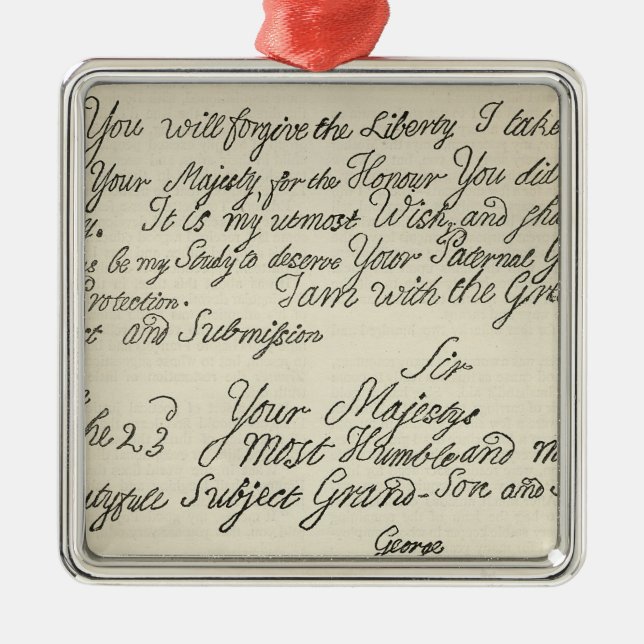 You will forgive the Liberty I take
Your Majesty, for the Honour You did
It is my utmost Wish, and sha
be my Study to deserve Your Paternal
Protection. I am with the Gre
ct and Submission
Sir
he 23 Your Majestys
Most Humble and m
utyfull Subject Grand-Son and
George